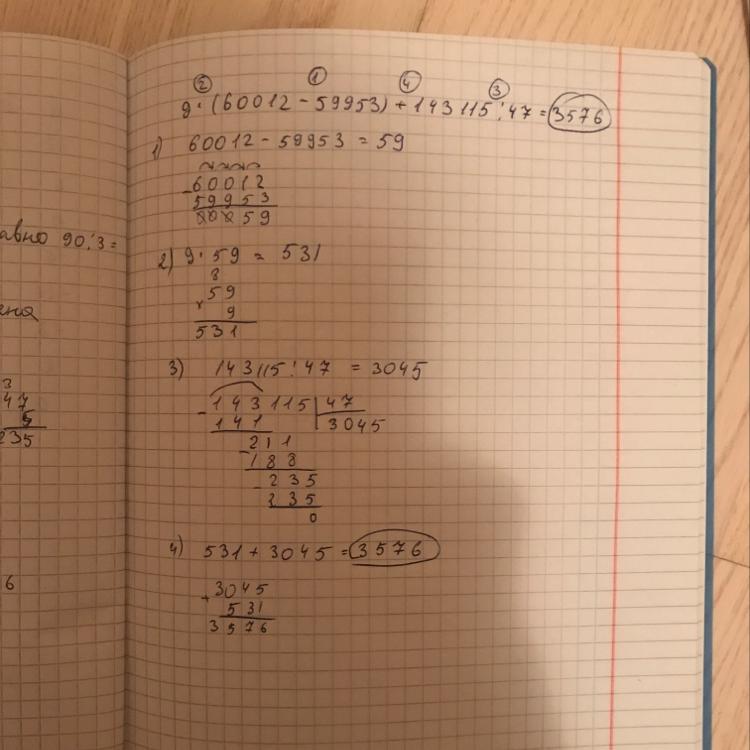 ② ① ④ ③
9·(60012-59953)+143115:47=3576
1) 60012-59953=59
-60012
59953
00059
авно 90:3=
2) 9·59=531
8
59
×9
531
3) 143115:47=3045
3
47
5
235
-143115|47
141 3045
-211
188
-235
235
0
4) 531+3045=3576
6
3045
+531
3576